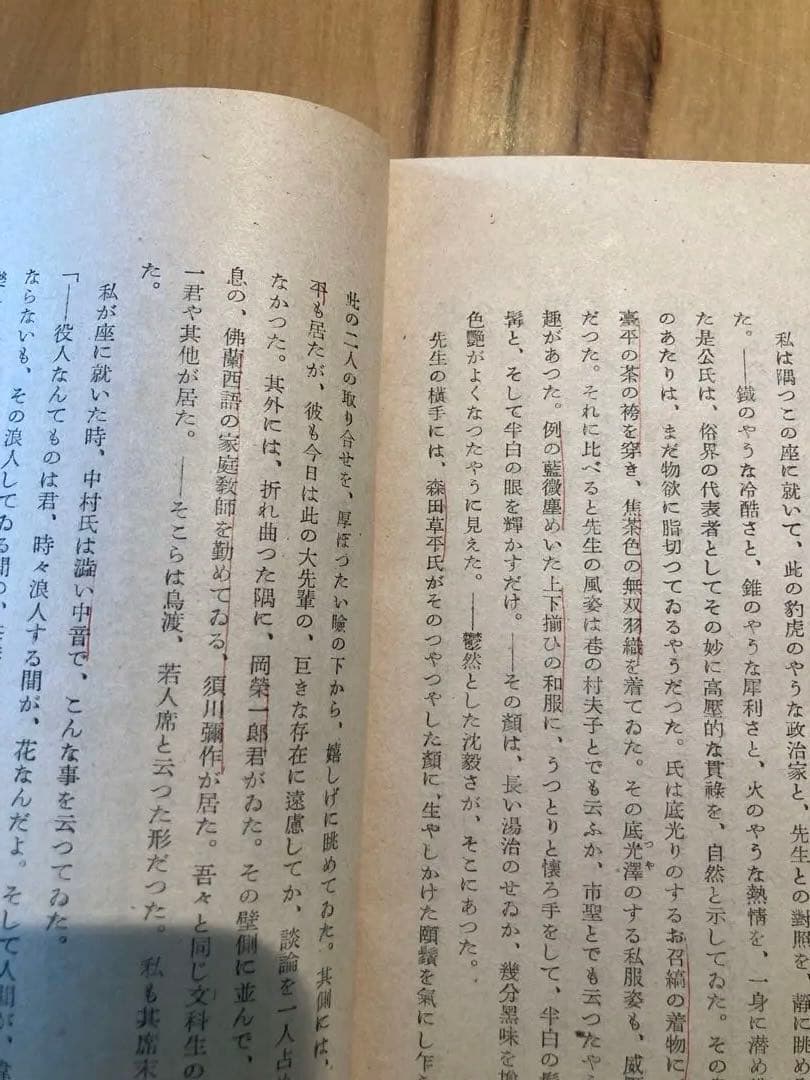 私は隅つこの座に就いて、此の豹虎のやうな政治家と、先生との對照を、靜に眺め
た。――鐵のやうな冷酷さと、錐のやうな犀利さと、火のやうな熱情を、一身に潜め
た是公氏は、俗界の代表者としてその妙に高壓的な貫祿を、自然と示してゐた。その
のあたりは、まだ物欲に脂切つてゐるやうだつた。氏は底光りのするお召縞の着物に
臺平の茶の袴を穿き、焦茶色の無双羽織を着てゐた。その底光澤のする私服姿も、威
つや
だつた。それに比べると先生の風姿は巷の村夫子とでも云ふか、市聖とでも云つたや
趣があつた。例の藍微塵めいた上下揃ひの和服に、うつとりと懷ろ手をして、半白の
髯と、そして半白の眼を輝かすだけ。――その顏は、長い湯治のせゐか、幾分黑味を
色艷がよくなつたやうに見えた。――鬱然とした沈毅さが、そこにあつた。
先生の横手には、森田草平氏がそのつやつやした顏に、生やしかけた頤鬚を氣にし乍
此の二人の取り合せを、厚ぼつたい瞼の下から、嬉しげに眺めてゐた。其側には、
平も居たが、彼も今日は此の大先輩の、巨きな存在に遠慮してか、談論を一人占め
なかつた。其外には、折れ曲つた隅に、岡榮一郎君がゐた。その壁側に並んで、
息の、佛蘭西語の家庭敎師を勤めてゐる、須川彌作が居た。吾々と同じ文科生の
一君や其他が居た。――そこらは鳥渡、若人席と云つた形だつた。私も其席末
た。
私が座に就いた時、中村氏は澁い中音で、こんな事を云つてゐた。
「――役人なんてものは君、時々浪人する間が、花なんだよ。そして人間が、
ならないも、その浪人してゐる間の、